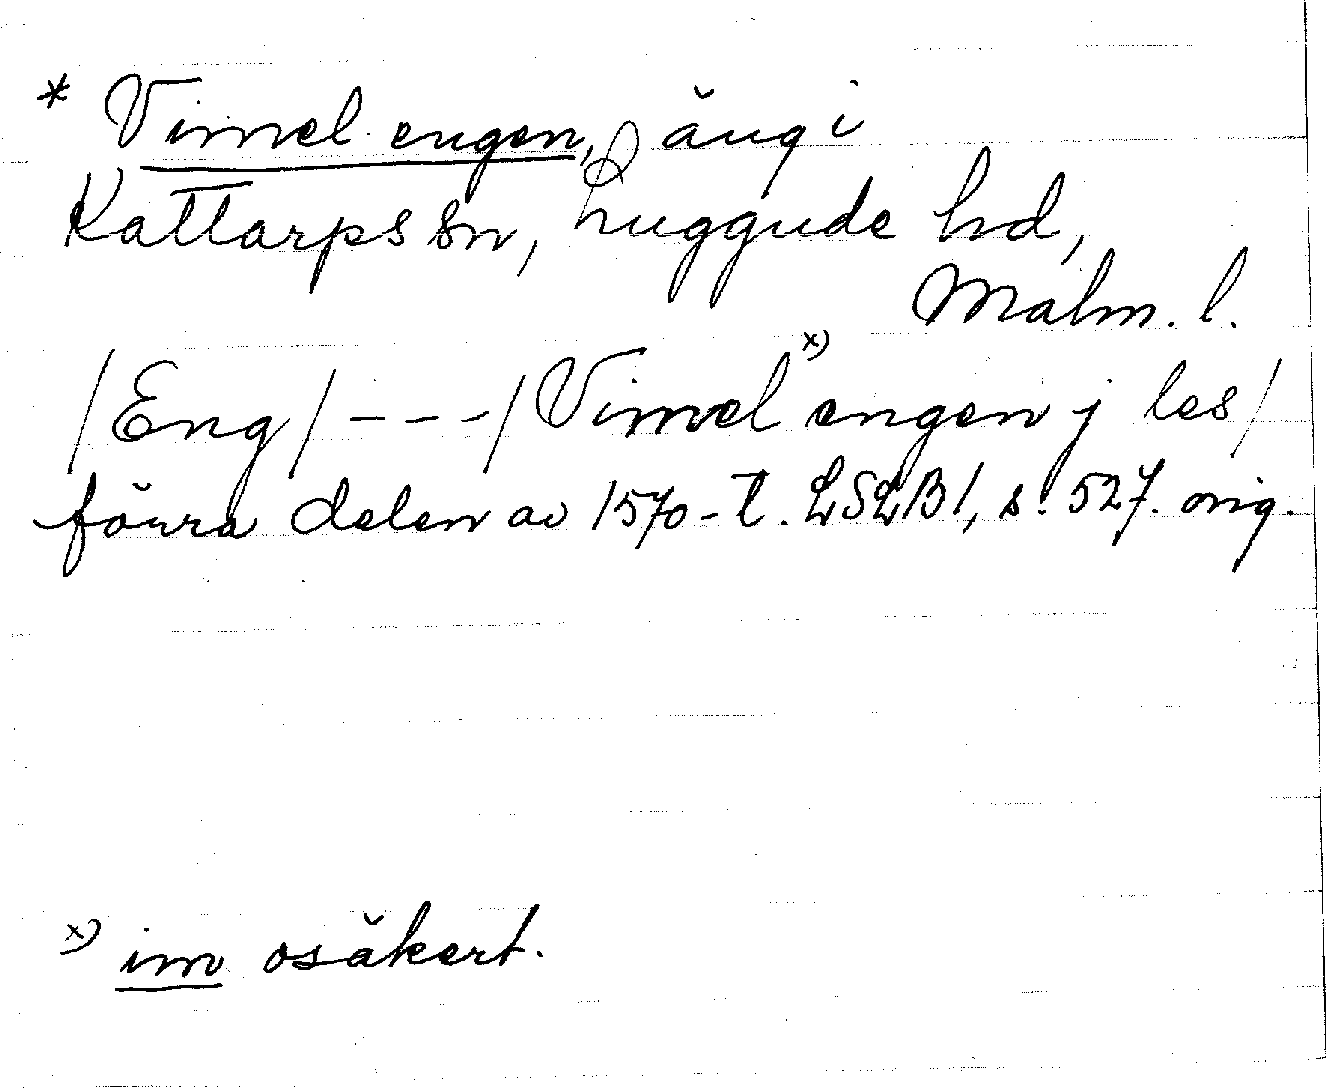 * Vimel engen, äng i
Kattarps sn, Luggude hd,
Malm. l.
/Eng/ - - -/ Vimel x) engen j les/
förra delen av 1570-t. LSLB1, s. 527. orig.
x) im osäkert.